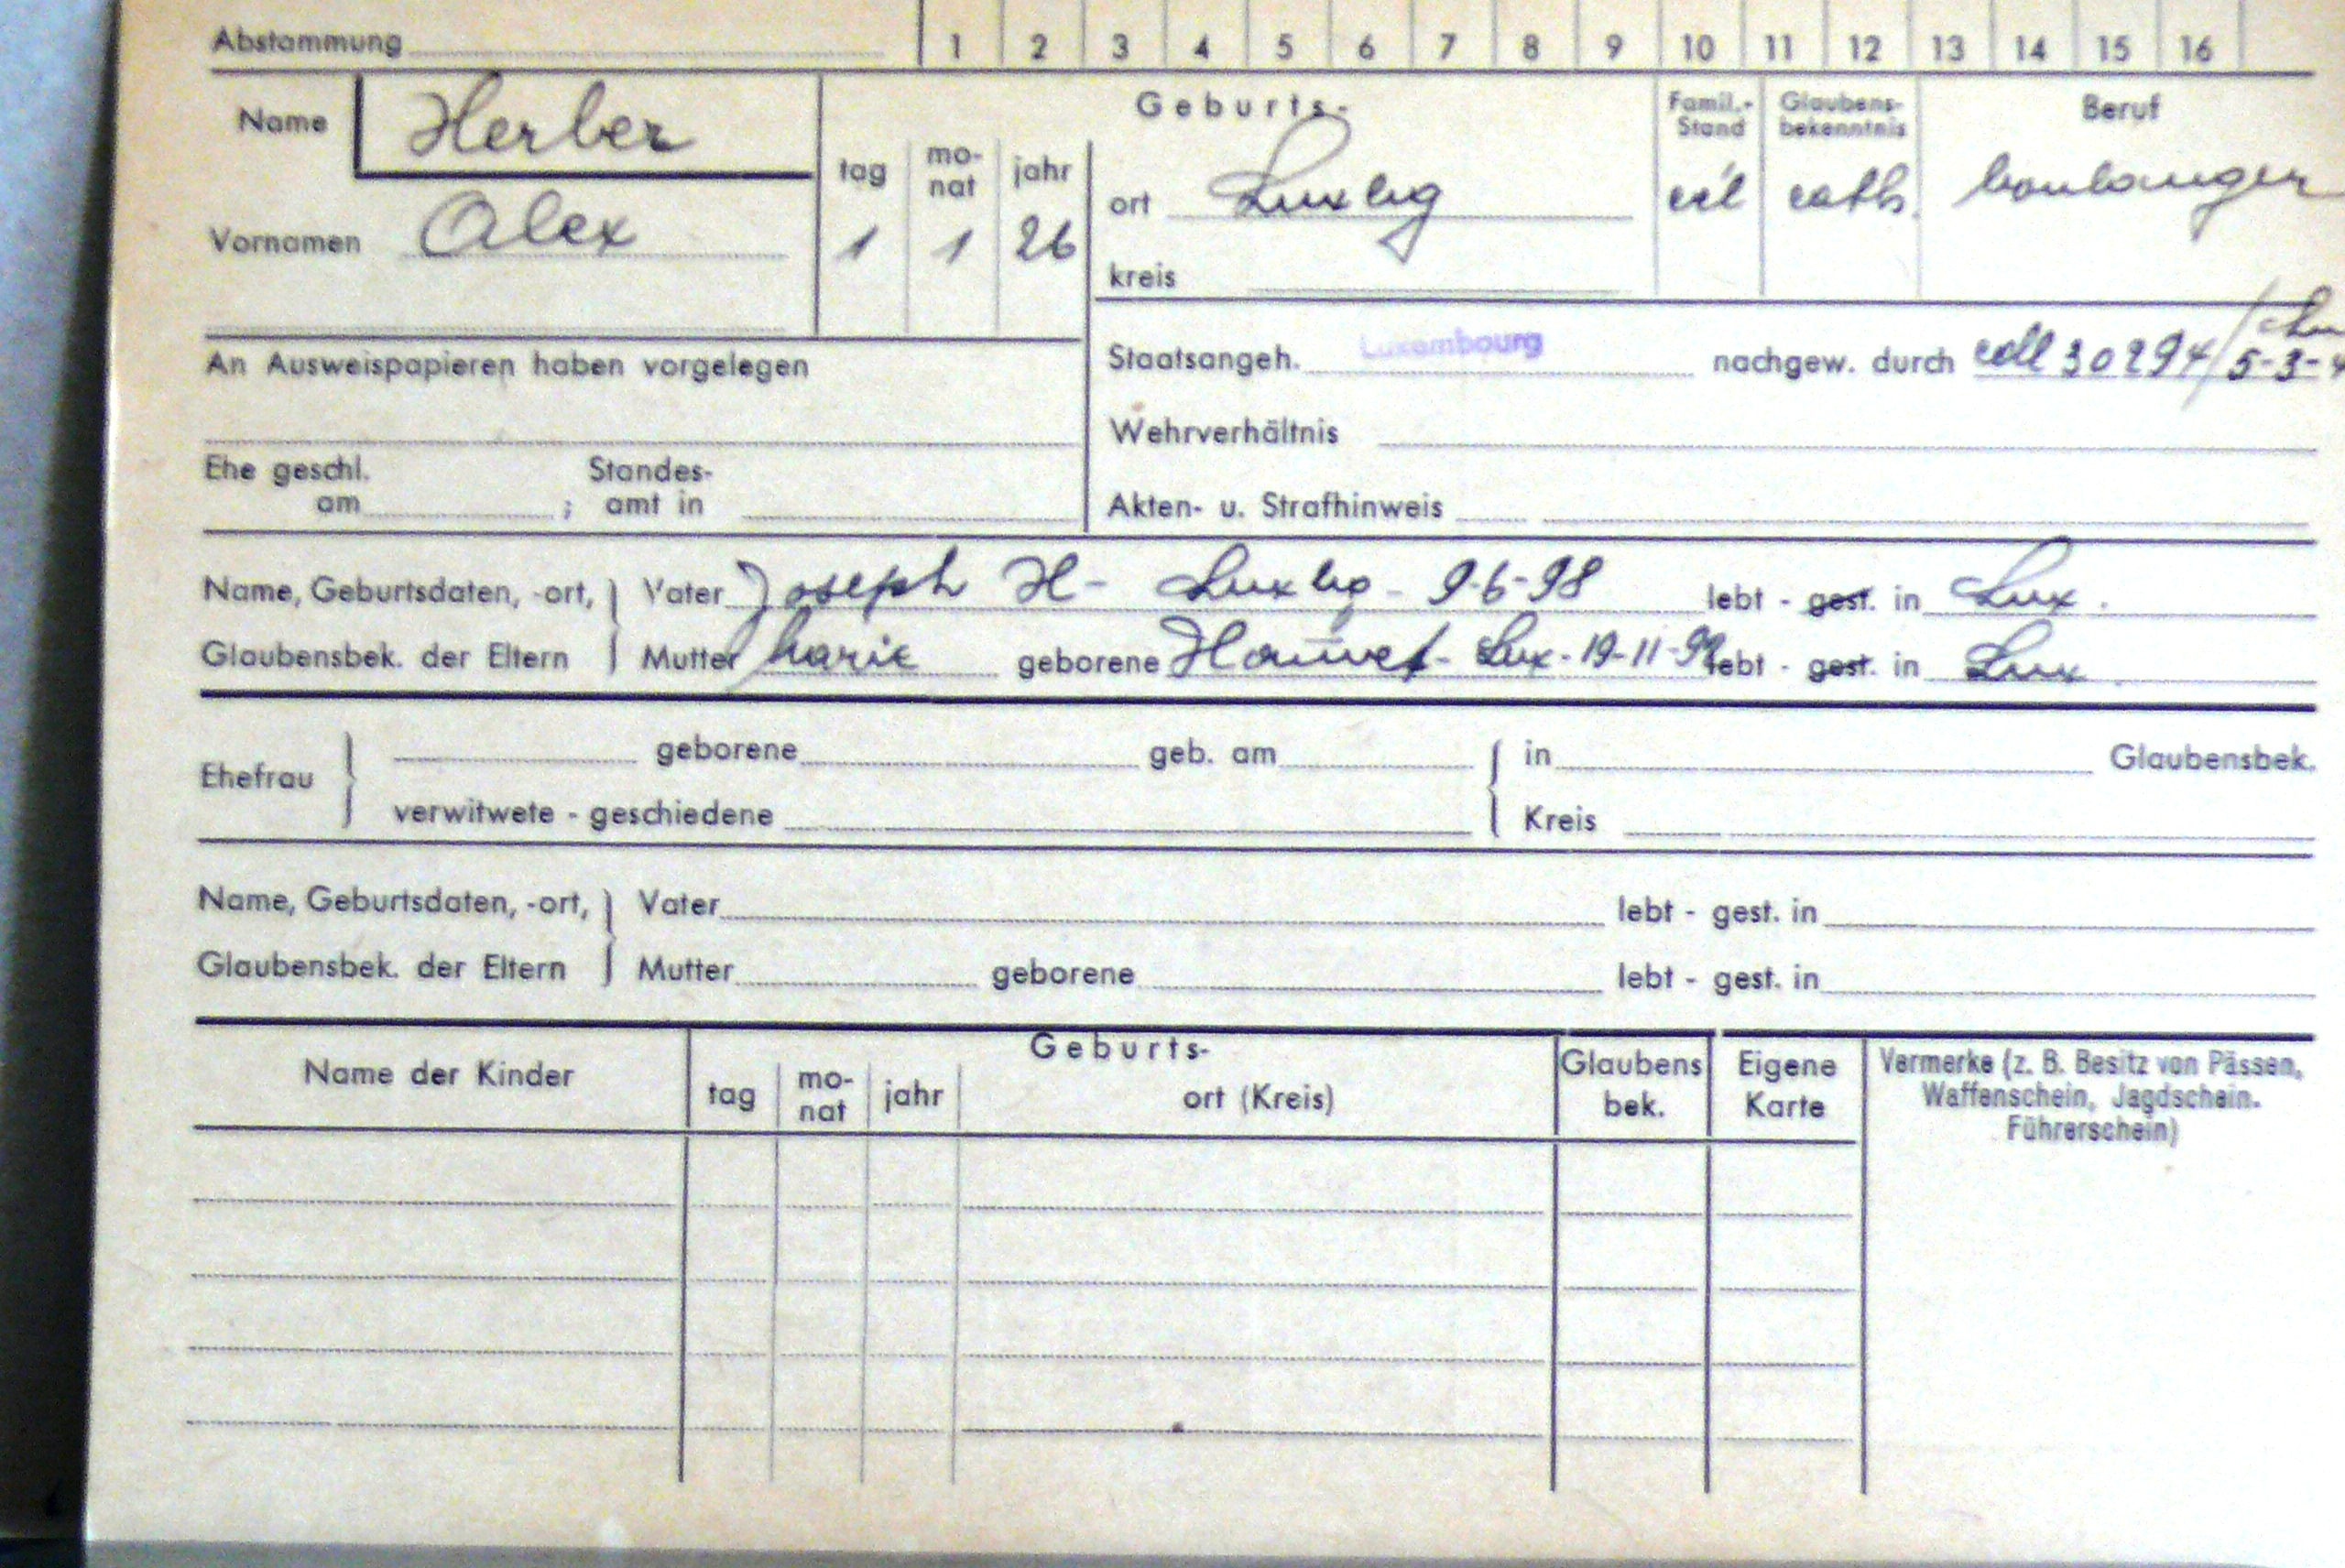 Abstammung 1 2 3 4 5 6 7 8 9 10 11 12 13 14 15 16
Name Herber
Vornamen Alex
Geburts-
tag mo-nat jahr
1 1 26
ort Luxbg
kreis
Famil.-Stand cél
Glaubens-bekenntnis cath.
Beruf boulanger
An Ausweispapieren haben vorgelegen
Staatsangeh. Luxembourg nachgew. durch 30294/ 5-3-4
Wehrverhältnis
Ehe geschl. am ; Standes-amt in
Akten- u. Strafhinweis
Name, Geburtsdaten, -ort, Vater Joseph H- Luxbg - 9-6-98 lebt - gest. in Lux.
Glaubensbek. der Eltern Mutter Marie geborene - Lux - 19-11-99 lebt - gest. in Lux.
Ehefrau geborene geb. am in Glaubensbek.
verwitwete - geschiedene Kreis
Name, Geburtsdaten, -ort, Vater lebt - gest. in
Glaubensbek. der Eltern Mutter geborene lebt - gest. in
Name der Kinder
Geburts-
tag mo-nat jahr ort (Kreis)
Glaubens bek.
Eigene Karte
Vermerke (z. B. Besitz von Pässen,
Waffenschein, Jagdschein.
Führerschein)